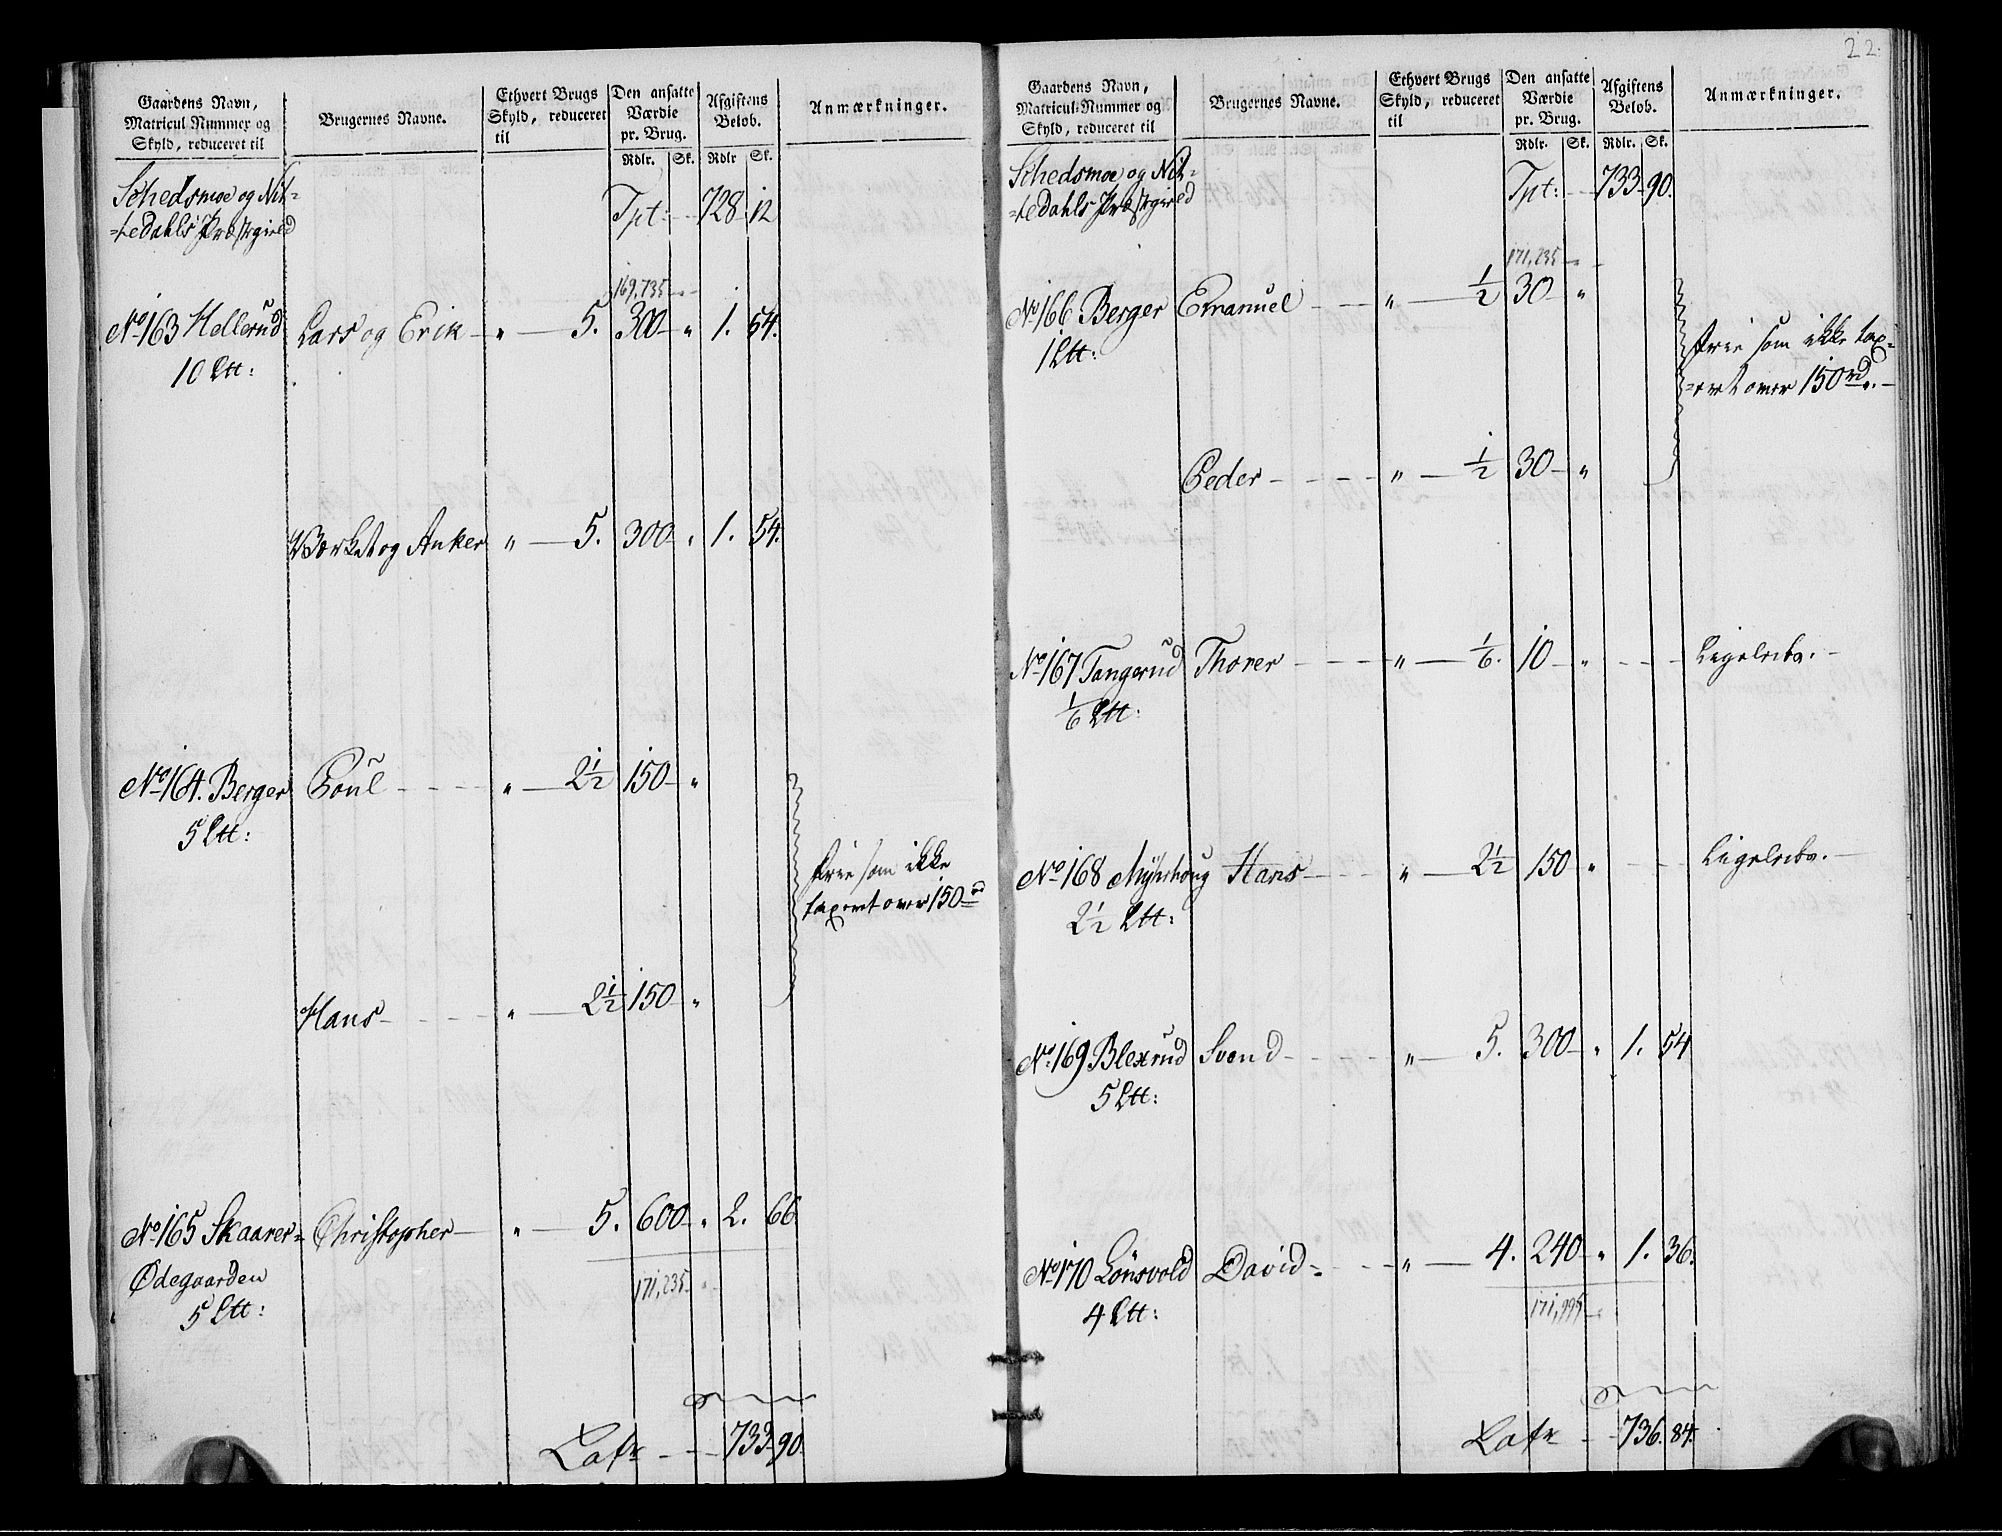 Gaardens Navn, Matricul Nummer og Skyld, reduceret til | Brugernes Navne. | Ethvert Brugs Skyld, reduceret til | Den ansatte Værdie pr. Brug. Rdlr. Sk. | Afgiftens Beløb. Rdlr Sk. | Anmærkninger.
Schedsmoe og Nit-
=tedahls Præstgield Tpt: 728 12
169,735
No 163 Hellerud Lars og Erik " 5. 300 " 1. 54.
10 Ltt:
Værket og Anker " 5. 300 " 1. 54.
No 164. Berger Poul " 2½ 150 "
5 Ltt:
frie som ikke
taxert over 150 rd
Hans " 2½ 150 "
No 165 Skaarer= Christopher " 5. 600 " 2. 66
Ødegaarden
171,235
5 Ltt:
Lats 733 90.
22.
Gaardens Navn, Matricul-Nummer og Skyld, reduceret til | Brugernes Navne. | Ethvert Brugs Skyld, reduceret til | Den ansatte Værdie pr. Brug. Rdlr. Sk. | Afgiftens Beløb. Rdlr. Sk. | Anmærkninger.
Schedsmoe og Nit=
=tedahls Præstgield Tpt: 733 90.
171,235
No 166 Berger Emanuel " ½ 30 "
1 Ltt:
frie som ikke tax=
=ert over 150 rd.
Peder " ½ 30 "
No 167 Tangerud Thorer " 1/6. 10 " Ligeledes.
1/6 Ltt:
No 168 Myhrhoug Hans " 2½ 150 " Ligeledes.
2½ Ltt:
No 169 Blexrud Svend " 5. 300 " 1. 54
5 Ltt:
No 170 Lønsvold David " 4. 240 " 1. 36.
171,995
4 Ltt:
Lats 736. 84.